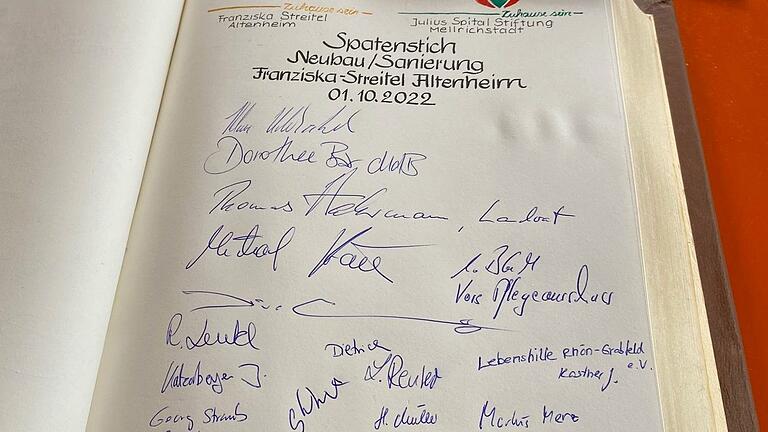 Zuhause sein
Franziska Streitel
Altenheim
Zuhause sein
Julius Spital Stiftung
Mellrichstadt
Spatenstich
Neubau/Sanierung
Franziska-Streitel Altenheim
01.10.2022
Dorothee Bär MdB
Thomas Habermann, Landrat
Michael Kraus
1. BGM
Vors Pflegeausschuss
Dietrich
L. Reuter
Lebenshilfe Rhön-Grabfeld
e.V.
Georg Straub
H. Müller
Markus Merz